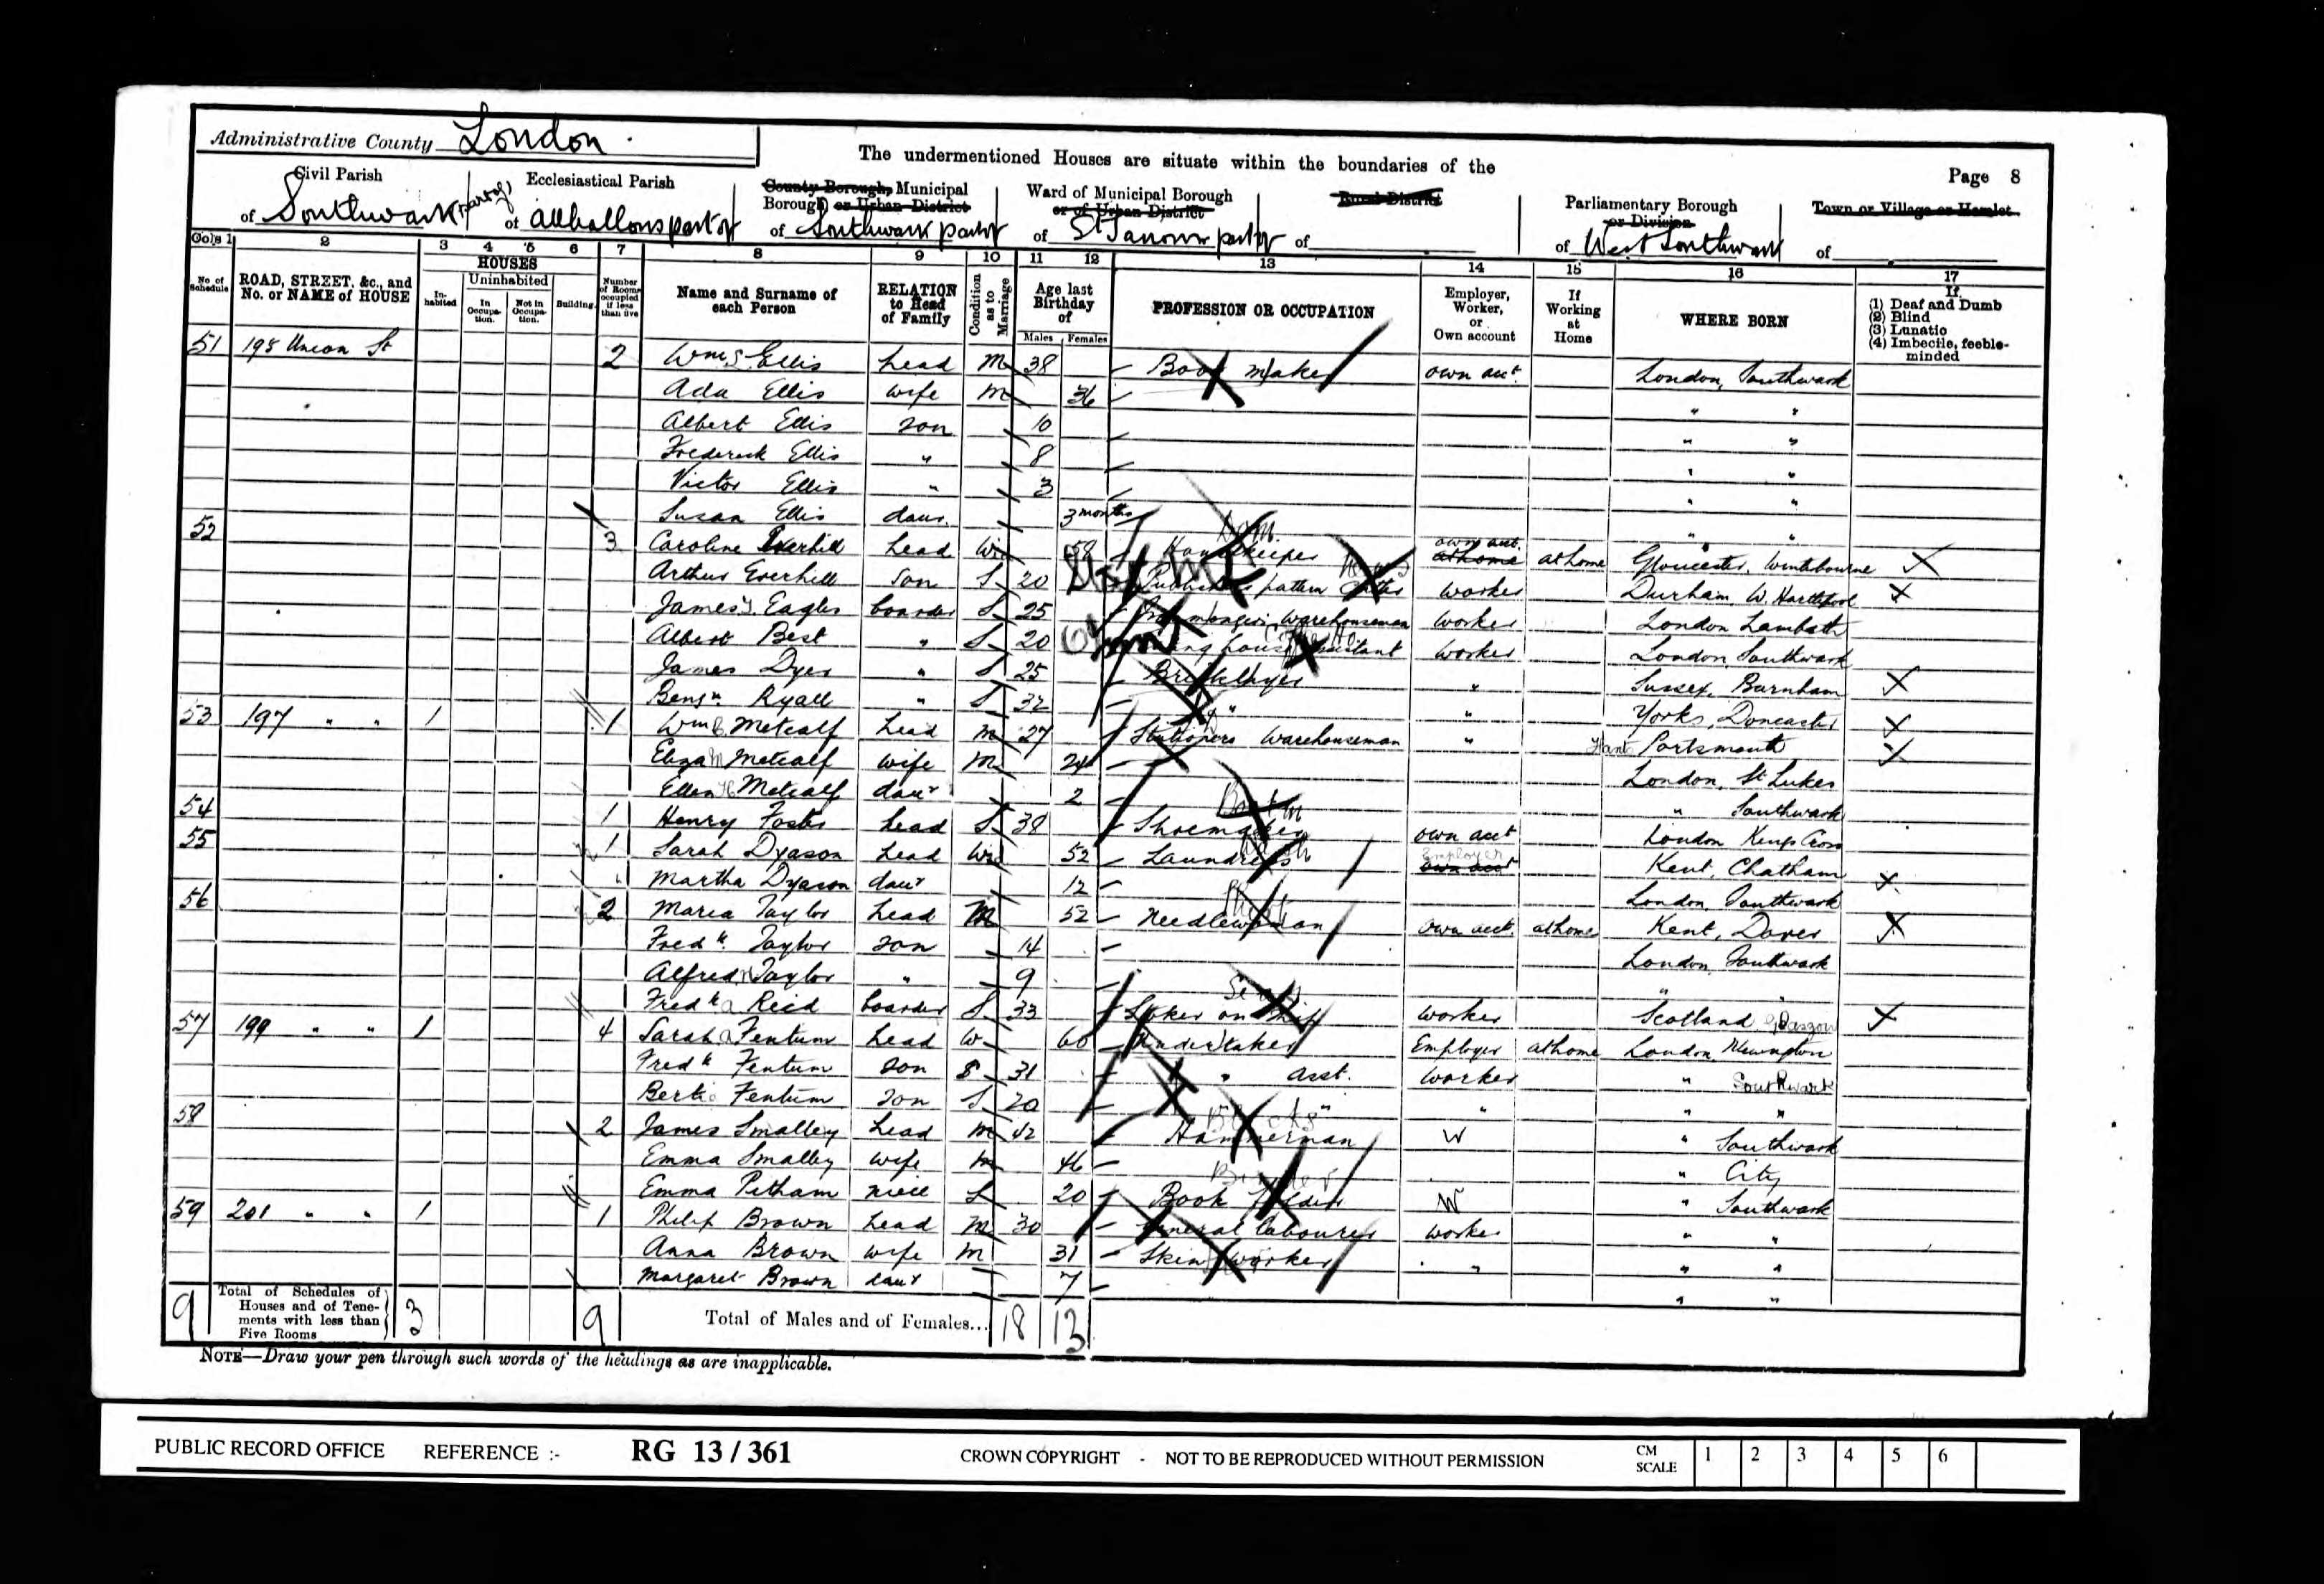 Administrative County London
The undermentioned Houses are situate within the boundaries of the
Page 8
Civil Parish of Southwark (part of)
Ecclesiastical Parish of Allhallows part of
County Borough, Municipal Borough or Urban District of Southwark part of
Ward of Municipal Borough or of Urban District of St Saviour part of
Rural District of
Parliamentary Borough or Division of West Southwark
Town or Village or Hamlet of
Cols 1 2 3 4 5 6 7 8 9 10 11 12 13 14 15 16 17
No of Schedule
ROAD, STREET, &c., and No. or NAME of HOUSE
HOUSES
Inhabited
Uninhabited
In Occupation.
Not in Occupation.
Building.
Number of Rooms occupied if less than five
Name and Surname of each Person
RELATION to Head of Family
Condition as to Marriage
Age last Birthday of
Males Females
PROFESSION OR OCCUPATION
Employer, Worker, or Own account
If Working at Home
WHERE BORN
If
(1) Deaf and Dumb
(2) Blind
(3) Lunatic
(4) Imbecile, feeble-minded
51 198 Union St 2 Wm S. Ellis Head M 38 Boot maker own acct. London, Southwark
Ada Ellis wife M 36 " "
Albert Ellis son 10 " "
Frederick Ellis " 8 " "
Victor Ellis " 3 " "
Susan Ellis daur. 3 months " "
52 3 Caroline Everhill Head Wid 58 Housekeeper own acct. at home at home Gloucester, Wintebourne
Arthur Everhill Son S 20 pattern Worker Durham, W. Hartlepool
James Eagles boarder S 25 Ironmongers Warehouseman Worker London Lambeth
Albert Best " S 20 house assistant Worker London Southwark
James Dyer " S 25 Bricklayer " Sussex, Burnham
Benjn. Ryall " S 32 " " Yorks, Doncaster
53 197 " " 1 1 Wm Metcalf Head M 27 Stationers Warehouseman " Hants Portsmouth
Eliza M Metcalf wife M 24 London, St Lukes
Ellen H Metcalf daur 2 " Southwark
54 1 Henry Foster Head S 38 Shoemaker own acct London Kings Cross
55 1 Sarah Dyason Head Wid 52 Laundress Employer own acct Kent, Chatham
Martha Dyason daur 12 London, Southwark
56 2 Maria Taylor Head M 52 Needlewoman own acct. at home Kent, Dover
Fredk. Taylor son 14 London, Southwark
Alfred Taylor " 9 " "
Fredk a Reid boarder S 33 Stoker on Ship Worker Scotland Glasgow
57 199 " " 1 4 Sarah a Fentum Head W 60 Undertaker Employer at home London Newington
Fredk Fentum son S 31 " Asst. Worker " Southwark
Bertie Fentum son S 20 " " " "
58 2 James Smalley Head M 42 Hammerman W " Southwark
Emma Smalley wife M 46 " City
Emma Petham niece S 20 Book folder W " Southwark
59 201 " " 1 1 Philip Brown Head M 30 General labourer worker " "
Anna Brown wife M 31 Skin worker " " "
Margaret Brown daur 7 " "
9 Total of Schedules of Houses and of Tenements with less than Five Rooms 3 9 Total of Males and of Females... 18 13
NOTE—Draw your pen through such words of the headings as are inapplicable.
PUBLIC RECORD OFFICE REFERENCE :- RG 13 / 361 CROWN COPYRIGHT - NOT TO BE REPRODUCED WITHOUT PERMISSION CM SCALE 1 2 3 4 5 6